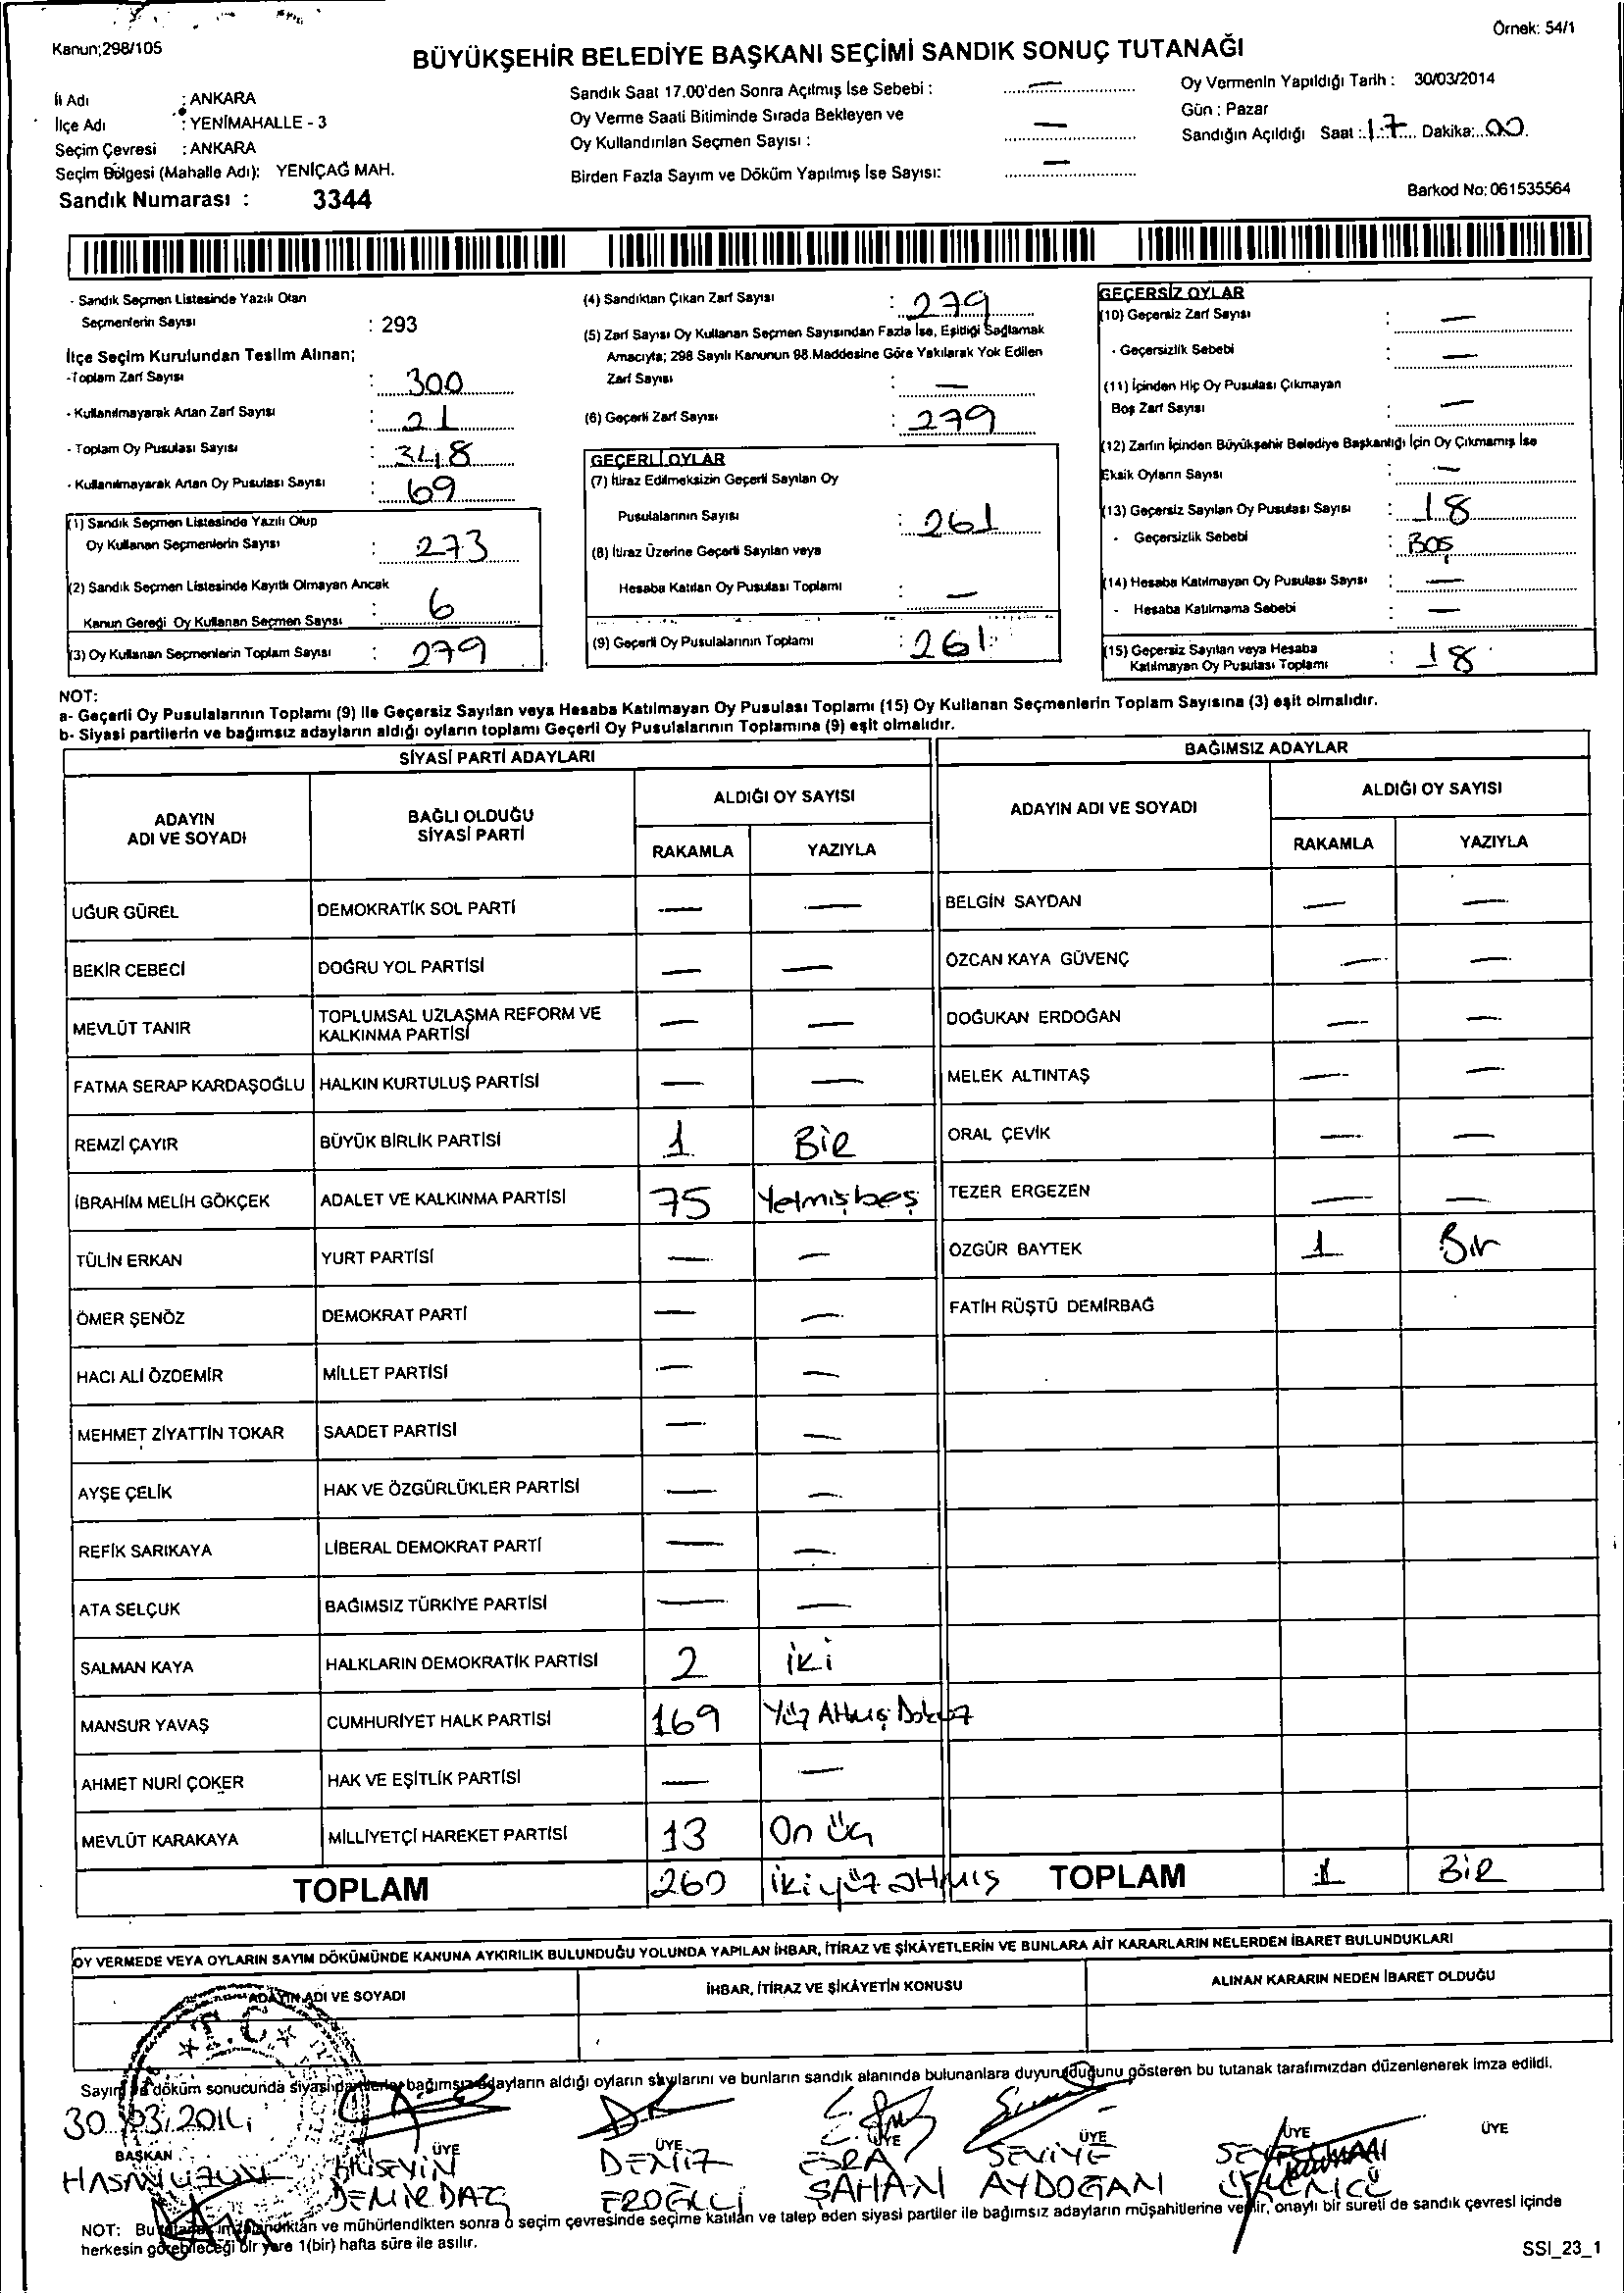 Örnek: 54/1
Kanun;298/105
BÜYÜKŞEHİR BELEDİYE BAŞKANI SEÇİMİ SANDIK SONUÇ TUTANAĞI
İl Adı : ANKARA
İlçe Adı : YENİMAHALLE - 3
Seçim Çevresi : ANKARA
Seçim Bölgesi (Mahalle Adı): YENİÇAĞ MAH.
Sandık Numarası : 3344
Sandık Saat 17.00'den Sonra Açılmış İse Sebebi : —
Oy Verme Saati Bitiminde Sırada Bekleyen ve
Oy Kullandırılan Seçmen Sayısı : —
Birden Fazla Sayım ve Döküm Yapılmış İse Sayısı: —
Oy Vermenin Yapıldığı Tarih : 30/03/2014
Gün : Pazar
Sandığın Açıldığı Saat : 17 Dakika: 00
Barkod No: 061535564
- Sandık Seçmen Listesinde Yazılı Olan
Seçmenlerin Sayısı : 293
İlçe Seçim Kurulundan Teslim Alınan;
-Toplam Zarf Sayısı : 300
- Kullanılmayarak Artan Zarf Sayısı : 21
- Toplam Oy Pusulası Sayısı : 348
- Kullanılmayarak Artan Oy Pusulası Sayısı : 69
(1) Sandık Seçmen Listesinde Yazılı Olup
Oy Kullanan Seçmenlerin Sayısı : 273
(2) Sandık Seçmen Listesinde Kayıtlı Olmayan Ancak
Kanun Gereği Oy Kullanan Seçmen Sayısı : 6
(3) Oy Kullanan Seçmenlerin Toplam Sayısı : 279
(4) Sandıktan Çıkan Zarf Sayısı : 279
(5) Zarf Sayısı Oy Kullanan Seçmen Sayısından Fazla İse, Eşitliği Sağlamak
Amacıyla; 298 Sayılı Kanunun 98.Maddesine Göre Yakılarak Yok Edilen
Zarf Sayısı : —
(6) Geçerli Zarf Sayısı : 279
GEÇERLİ OYLAR
(7) İtiraz Edilmeksizin Geçerli Sayılan Oy
Pusulalarının Sayısı : 261
(8) İtiraz Üzerine Geçerli Sayılan veya
Hesaba Katılan Oy Pusulası Toplamı : —
(9) Geçerli Oy Pusulalarının Toplamı : 261
GEÇERSİZ OYLAR
(10) Geçersiz Zarf Sayısı : —
- Geçersizlik Sebebi : —
(11) İçinden Hiç Oy Pusulası Çıkmayan
Boş Zarf Sayısı : —
(12) Zarfın İçinden Büyükşehir Belediye Başkanlığı İçin Oy Çıkmamış İse
Eksik Oyların Sayısı : —
(13) Geçersiz Sayılan Oy Pusulası Sayısı : 18
- Geçersizlik Sebebi : BOŞ
(14) Hesaba Katılmayan Oy Pusulası Sayısı : —
- Hesaba Katılmama Sebebi : —
(15) Geçersiz Sayılan veya Hesaba
Katılmayan Oy Pusulası Toplamı : 18
NOT:
a- Geçerli Oy Pusulalarının Toplamı (9) ile Geçersiz Sayılan veya Hesaba Katılmayan Oy Pusulası Toplamı (15) Oy Kullanan Seçmenlerin Toplam Sayısına (3) eşit olmalıdır.
b- Siyasi partilerin ve bağımsız adayların aldığı oyların toplamı Geçerli Oy Pusulalarının Toplamına (9) eşit olmalıdır.
SİYASİ PARTİ ADAYLARI
ADAYIN ADI VE SOYADI
BAĞLI OLDUĞU SİYASİ PARTİ
ALDIĞI OY SAYISI
RAKAMLA YAZIYLA
UĞUR GÜREL DEMOKRATİK SOL PARTİ — —
BEKİR CEBECİ DOĞRU YOL PARTİSİ — —
MEVLÜT TANIR TOPLUMSAL UZLAŞMA REFORM VE KALKINMA PARTİSİ — —
FATMA SERAP KARDAŞOĞLU HALKIN KURTULUŞ PARTİSİ — —
REMZİ ÇAYIR BÜYÜK BİRLİK PARTİSİ 1 BİR
İBRAHİM MELİH GÖKÇEK ADALET VE KALKINMA PARTİSİ 75 Yetmişbeş
TÜLİN ERKAN YURT PARTİSİ — —
ÖMER ŞENÖZ DEMOKRAT PARTİ — —
HACI ALİ ÖZDEMİR MİLLET PARTİSİ — —
MEHMET ZİYATTİN TOKAR SAADET PARTİSİ — —
AYŞE ÇELİK HAK VE ÖZGÜRLÜKLER PARTİSİ — —
REFİK SARIKAYA LİBERAL DEMOKRAT PARTİ — —
ATA SELÇUK BAĞIMSIZ TÜRKİYE PARTİSİ — —
SALMAN KAYA HALKLARIN DEMOKRATİK PARTİSİ 2 İki
MANSUR YAVAŞ CUMHURİYET HALK PARTİSİ 169 Yüz Altmış Dokuz
AHMET NURİ ÇOKER HAK VE EŞİTLİK PARTİSİ — —
MEVLÜT KARAKAYA MİLLİYETÇİ HAREKET PARTİSİ 13 On üç
TOPLAM 260 ikiyüz altmış
BAĞIMSIZ ADAYLAR
ADAYIN ADI VE SOYADI
ALDIĞI OY SAYISI
RAKAMLA YAZIYLA
BELGİN SAYDAN — —
ÖZCAN KAYA GÜVENÇ — —
DOĞUKAN ERDOĞAN — —
MELEK ALTINTAŞ — —
ORAL ÇEVİK — —
TEZER ERGEZEN — —
ÖZGÜR BAYTEK 1 Bir
FATİH RÜŞTÜ DEMİRBAĞ
TOPLAM 1 BİR
OY VERMEDE VEYA OYLARIN SAYIM DÖKÜMÜNDE KANUNA AYKIRILIK BULUNDUĞU YOLUNDA YAPILAN İHBAR, İTİRAZ VE ŞİKÂYETLERİN VE BUNLARA AİT KARARLARIN NELERDEN İBARET BULUNDUKLARI
ADAYIN ADI VE SOYADI
İHBAR, İTİRAZ VE ŞİKÂYETİN KONUSU
ALINAN KARARIN NEDEN İBARET OLDUĞU
T.C.
Sayım ve döküm sonucunda siyasi partilerle bağımsız adayların aldığı oyların sayılarını ve bunların sandık alanında bulunanlara duyurulduğunu gösteren bu tutanak tarafımızdan düzenlenerek imza edildi.
30/03/2014
BAŞKAN ÜYE ÜYE ÜYE ÜYE ÜYE ÜYE
HASAN HÜSEYİN DENİZ ESRA SENİYE
DEMİRDAĞ EROĞLU ŞAHAN AYDOĞAN
NOT: Bu tutanak imzalandıktan ve mühürlendikten sonra o seçim çevresinde seçime katılan ve talep eden siyasi partiler ile bağımsız adayların müşahitlerine verilir, onaylı bir sureti de sandık çevresi içinde
herkesin görebileceği bir yere 1(bir) hafta süre ile asılır.
SSI_23_1